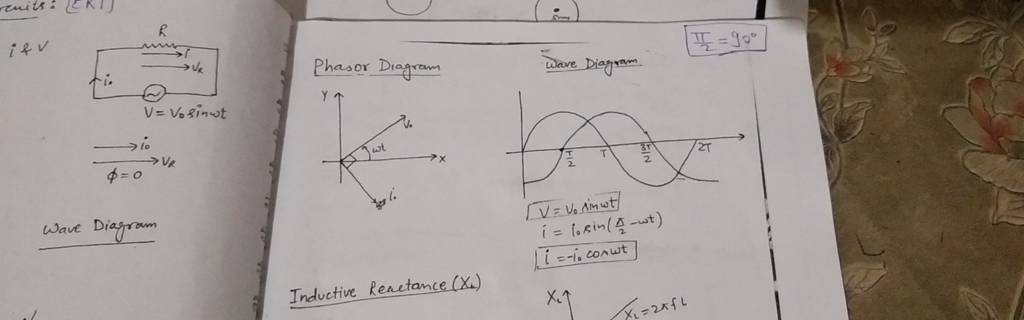 i & V
R
i
VR
i₀
V = V₀ sinωt
i₀
VR
ϕ = 0
Wave Diagram
π/2 = 90°
Phasor Diagram
Y
V₀
ωt
X
i₀
Wave Diagram
π/2
π
3π/2
2π
V = V₀ sinωt
i = i₀ sin(π/2 - ωt)
i = -i₀ cosωt
Inductive Reactance (XL)
XL
XL = 2πfL